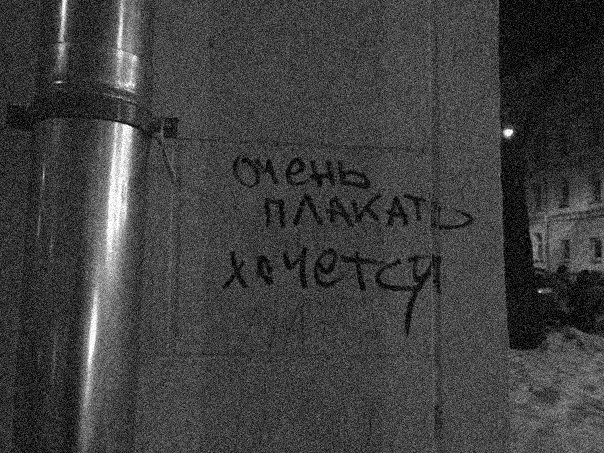 очень
плакать
хочется